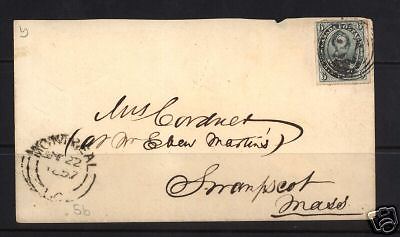 Mrs Cordner
(at Mr Eben Martin's)
Swampscot
Mass
MONTREAL
22
1857
L.C.
56